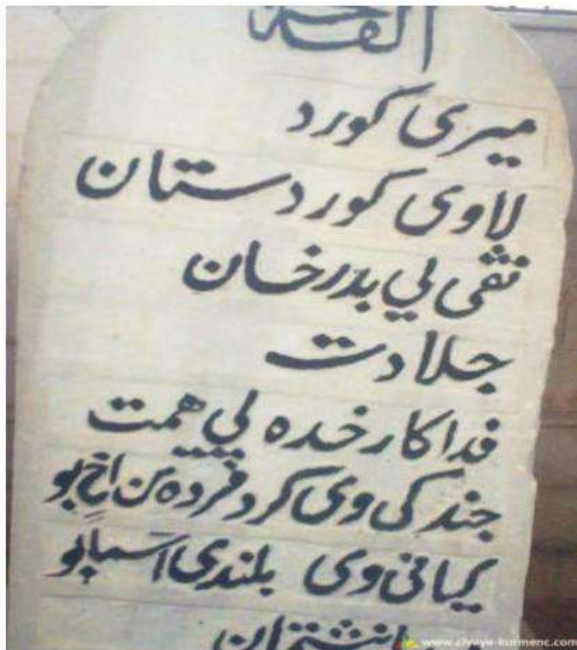 الفاتحة
ميرى كورد
لاوى كوردستان
نڤى لي بدرخان
جلادت
فداكار خده پي همت
جندكى وى كرد فرده بن اخ بو
گيانى وى بلندى اسمانو
www.ciyaye-kurmenc.com